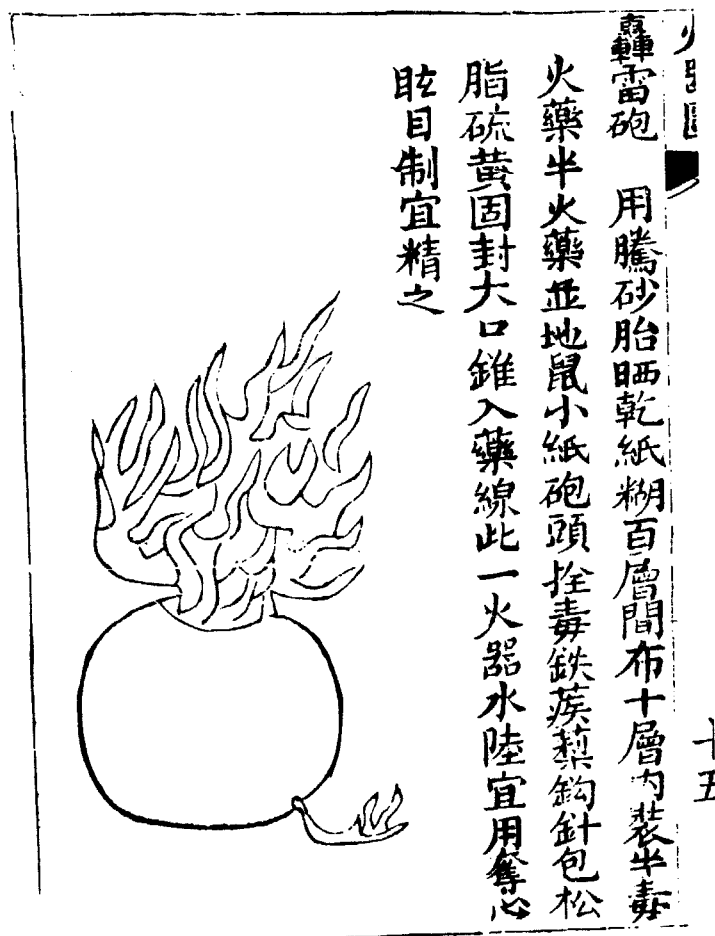 火器圖
轟雷砲　用騰砂胎晒乾紙糊百層間布十層內裝半毒
火藥半火藥並地鼠小紙砲頭拴毒鉄蒺藜鈎針包松
脂硫黃固封大口錐入藥線此一火器水陸宜用奪心
眩目制宜精之
十五